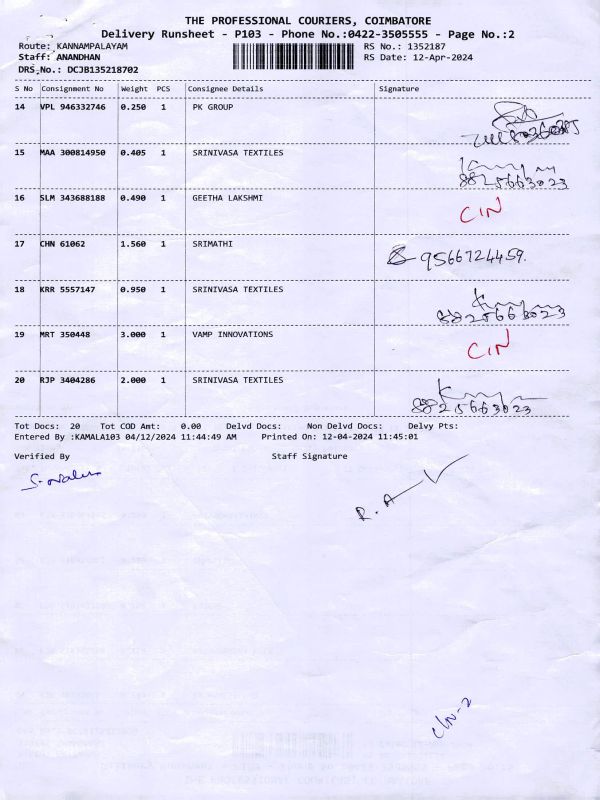 THE PROFESSIONAL COURIERS, COIMBATORE
Delivery Runsheet - P103 - Phone No.:0422-3505555 - Page No.:2
Route: KANNAMPALAYAM RS No.: 1352187
Staff: ANANDHAN RS Date: 12-Apr-2024
DRS No.: DCJB135218702
S No Consignment No Weight PCS Consignee Details Signature
14 VPL 946332746 0.250 1 PK GROUP
15 MAA 300814950 0.405 1 SRINIVASA TEXTILES
8825663023
16 SLM 343688188 0.490 1 GEETHA LAKSHMI CIN
17 CHN 61062 1.560 1 SRIMATHI 9566724459.
18 KRR 5557147 0.950 1 SRINIVASA TEXTILES
8825663023
19 MRT 350448 3.000 1 VAMP INNOVATIONS CIN
20 RJP 3404286 2.000 1 SRINIVASA TEXTILES
8825663023
Tot Docs: 20 Tot COD Amt: 0.00 Delvd Docs: Non Delvd Docs: Delvy Pts:
Entered By :KAMALA103 04/12/2024 11:44:49 AM Printed On: 12-04-2024 11:45:01
Verified By Staff Signature
R. A
CIN-2